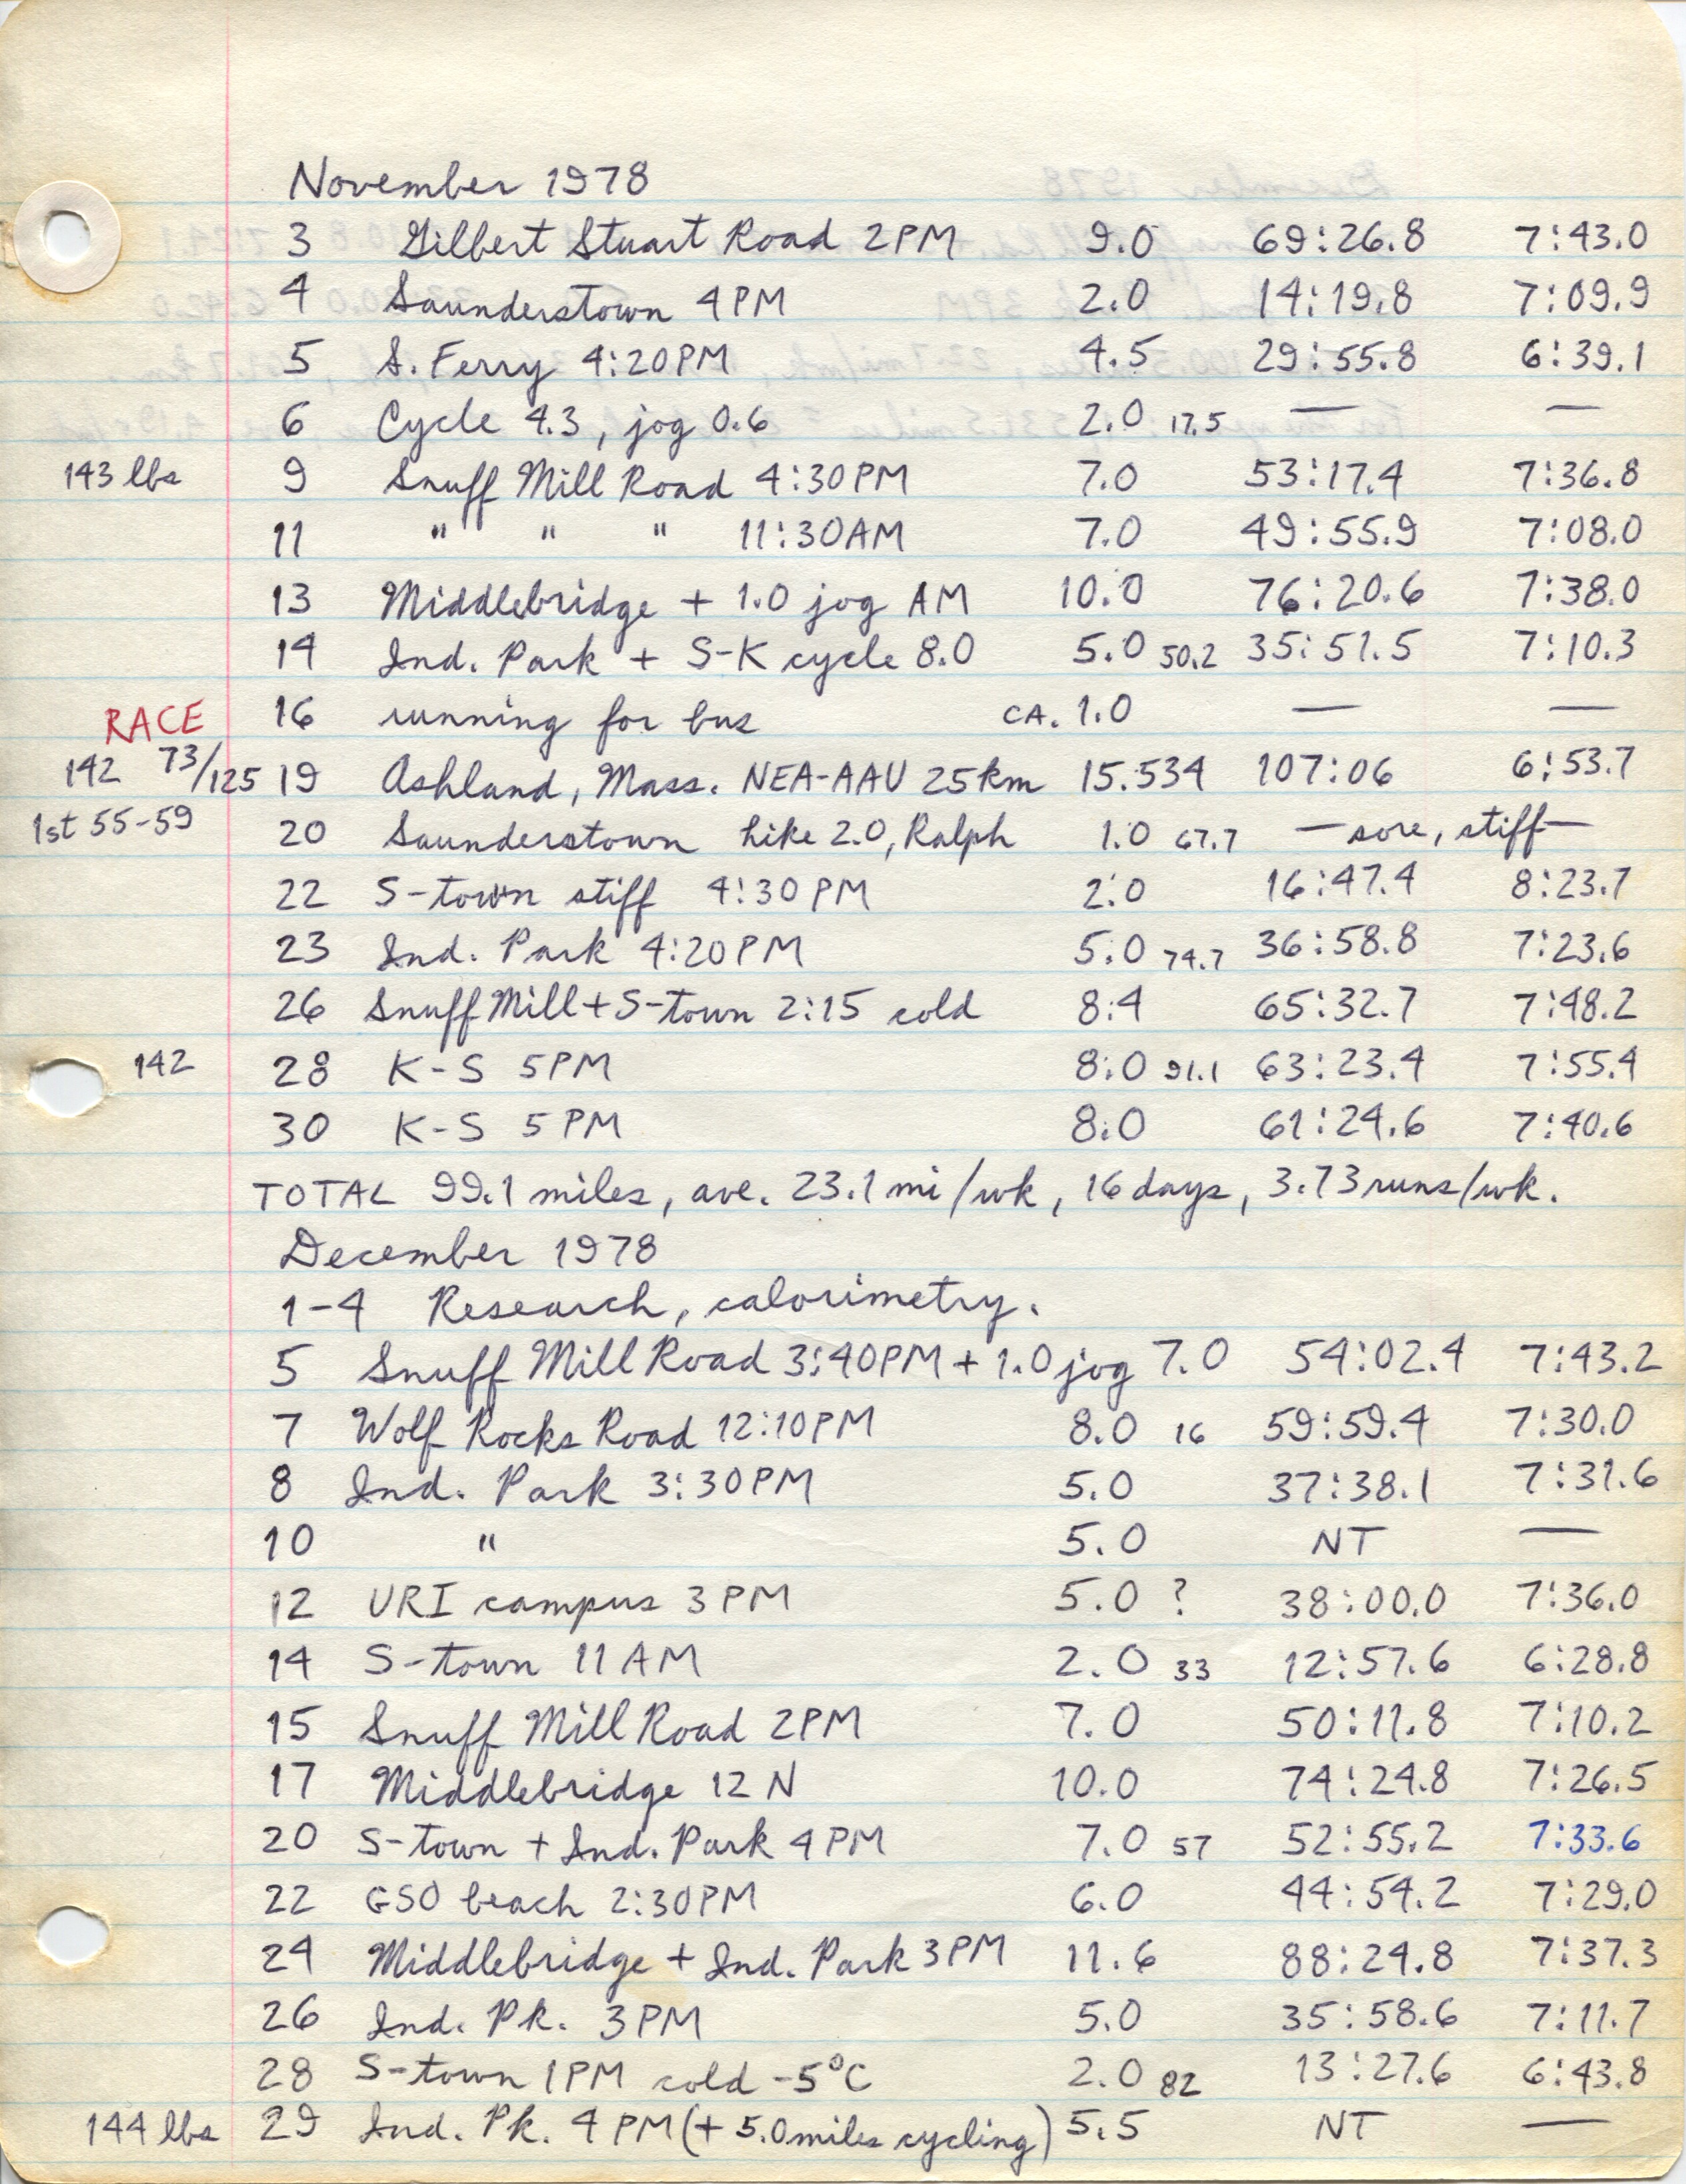 November 1978
3 Gilbert Stuart Road 2PM 9.0 69:26.8 7:43.0
4 Saunderstown 4PM 2.0 14:19.8 7:09.9
5 S. Ferry 4:20PM 4.5 29:55.8 6:39.1
6 Cycle 4.3, jog 0.6 2.0 17.5 — —
143 lbs 9 Snuff Mill Road 4:30PM 7.0 53:17.4 7:36.8
11 " " " 11:30AM 7.0 49:55.9 7:08.0
13 Middlebridge + 1.0 jog AM 10.0 76:20.6 7:38.0
14 Ind. Park + S-K cycle 8.0 5.0 50.2 35:51.5 7:10.3
RACE 16 running for bus CA. 1.0 — —
142 73/125 19 Ashland, Mass. NEA-AAU 25km 15.534 107:06 6:53.7
1st 55-59 20 Saunderstown hike 2.0, Ralph 1.0 67.7 —sore, stiff—
22 S-town stiff 4:30PM 2.0 16:47.4 8:23.7
23 Ind. Park 4:20PM 5.0 74.7 36:58.8 7:23.6
26 Snuff Mill + S-town 2:15 cold 8.4 65:32.7 7:48.2
142 28 K-S 5PM 8.0 91.1 63:23.4 7:55.4
30 K-S 5PM 8.0 61:24.6 7:40.6
TOTAL 99.1 miles, ave. 23.1 mi/wk, 16 days, 3.73 runs/wk.
December 1978
1-4 Research, calorimetry.
5 Snuff Mill Road 3:40PM + 1.0 jog 7.0 54:02.4 7:43.2
7 Wolf Rocks Road 12:10PM 8.0 16 59:59.4 7:30.0
8 Ind. Park 3:30PM 5.0 37:38.1 7:31.6
10 " 5.0 NT —
12 URI campus 3PM 5.0 ? 38:00.0 7:36.0
14 S-town 11AM 2.0 33 12:57.6 6:28.8
15 Snuff Mill Road 2PM 7.0 50:11.8 7:10.2
17 Middlebridge 12N 10.0 74:24.8 7:26.5
20 S-town + Ind. Park 4PM 7.0 57 52:55.2 7:33.6
22 GSO beach 2:30PM 6.0 44:54.2 7:29.0
24 Middlebridge + Ind. Park 3PM 11.6 88:24.8 7:37.3
26 Ind. Pk. 3PM 5.0 35:58.6 7:11.7
28 S-town 1PM cold -5°C 2.0 82 13:27.6 6:43.8
144 lbs 29 Ind. Pk. 4PM (+ 5.0 miles cycling) 5.5 NT —